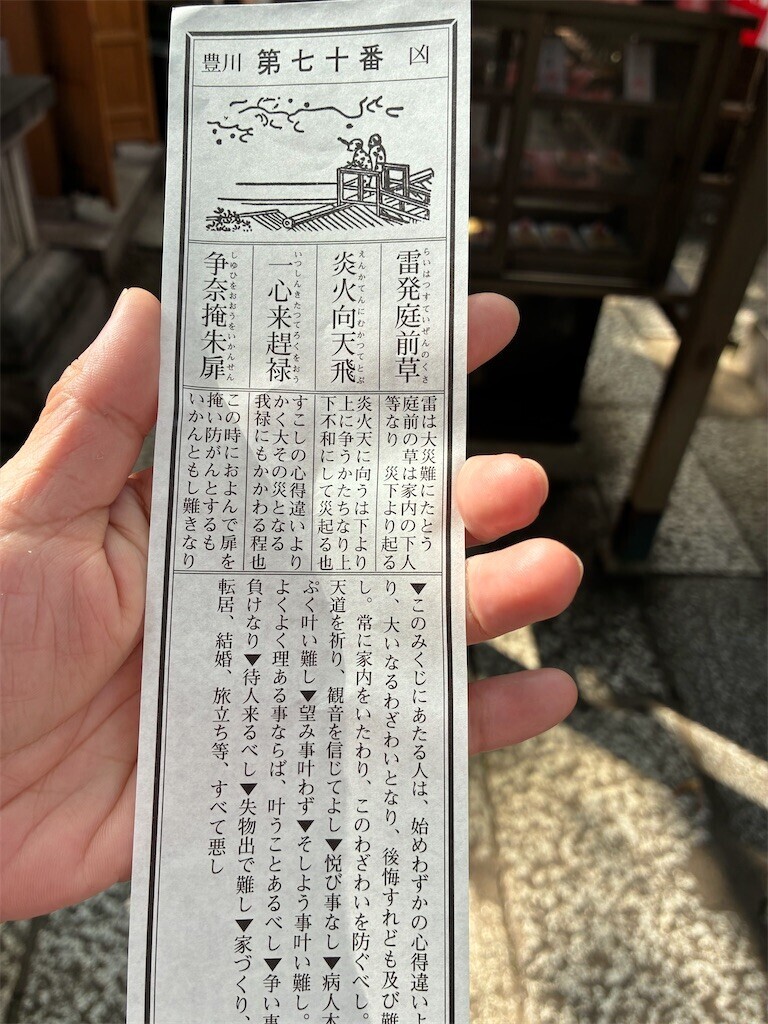 豊川 第七十番 凶
雷発庭前草
らいはつすていぜんのくさ
炎火向天飛
えんかてんにむかつてとぶ
一心来趕禄
いつしんきたつてろくをおう
争奈掩朱扉
しゆひをおおうをいかんせん
雷は大災難にたとう
庭前の草は家内の下人
等なり 災下より起る
炎火天に向うは下より
上に争うかたちなり上
下不和にして災起る也
すこしの心得違いより
かく大その災となる
我禄にもかかわる程也
この時におよんで扉を
掩い防がんとするも
いかんともし難きなり
▼このみくじにあたる人は、始めわずかの心得違いよ
り、大いなるわざわいとなり、後悔すれども及び難
し。常に家内をいたわり、このわざわいを防ぐべし。
天道を祈り、観音を信じてよし▼悦び事なし▼病人本
ぷく叶い難し▼望み事叶わず▼そしよう事叶い難し。
よくよく理ある事ならば、叶うことあるべし▼争い事
負けなり▼待人来るべし▼失物出で難し▼家づくり、
転居、結婚、旅立ち等、すべて悪し